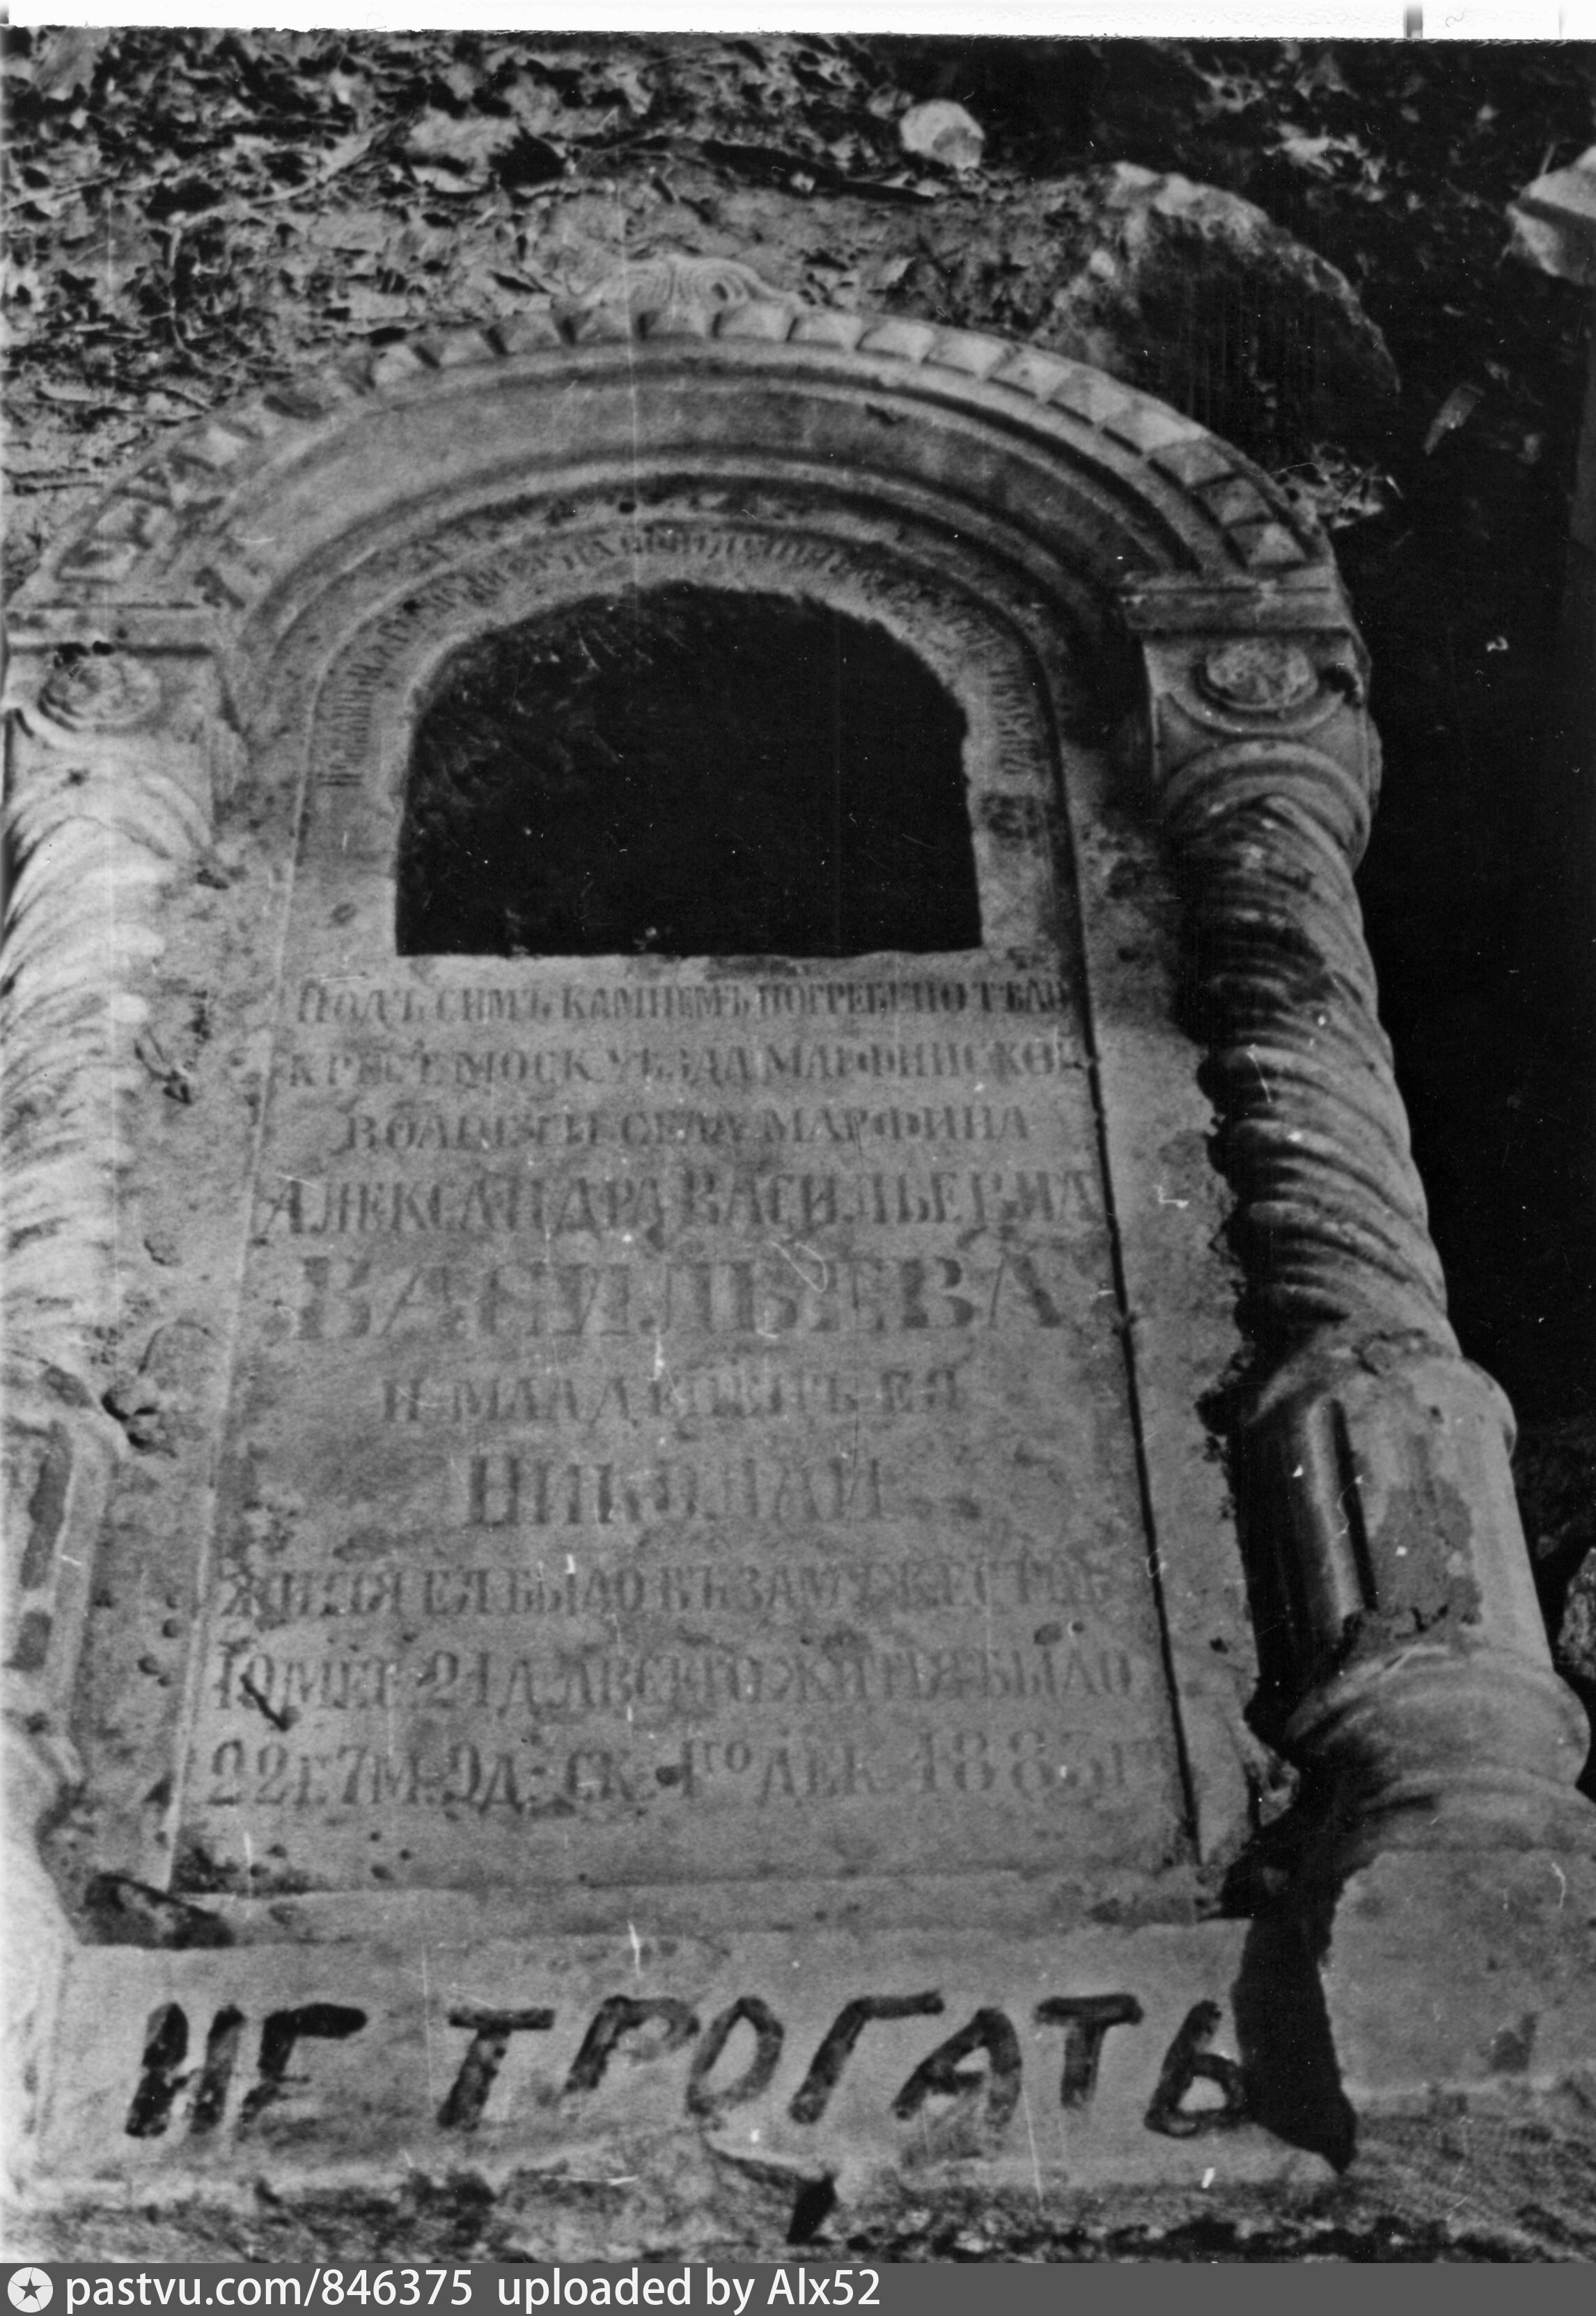 ПОДЪ СИМЪ КАМНЕМЪ ПОГРЕБЕНО ТѢЛО
КРЕСТ МОСК УѢЗДА МАРФИНСКОЙ
ВОЛОСТИ СЕЛА МАРФИНА
АЛЕКСАНДРА ВАСИЛЬЕВНА
ВАСИЛЬЕВА
И МЛАДЕНЕЦЪ ЕЯ
НИКОЛАЙ
ЖИТІЯ ЕЯ БЫЛО ВЪ ЗАМУЖЕСТВѢ
10 МЕТ 21 Д. А ВСЕГО ЖИТІЯ БЫЛО
22 г. 7 М. 9 Д: СК. 1го ДЕК 1883 г
НЕ ТРОГАТЬ
pastvu.com/846375 uploaded by Alx52